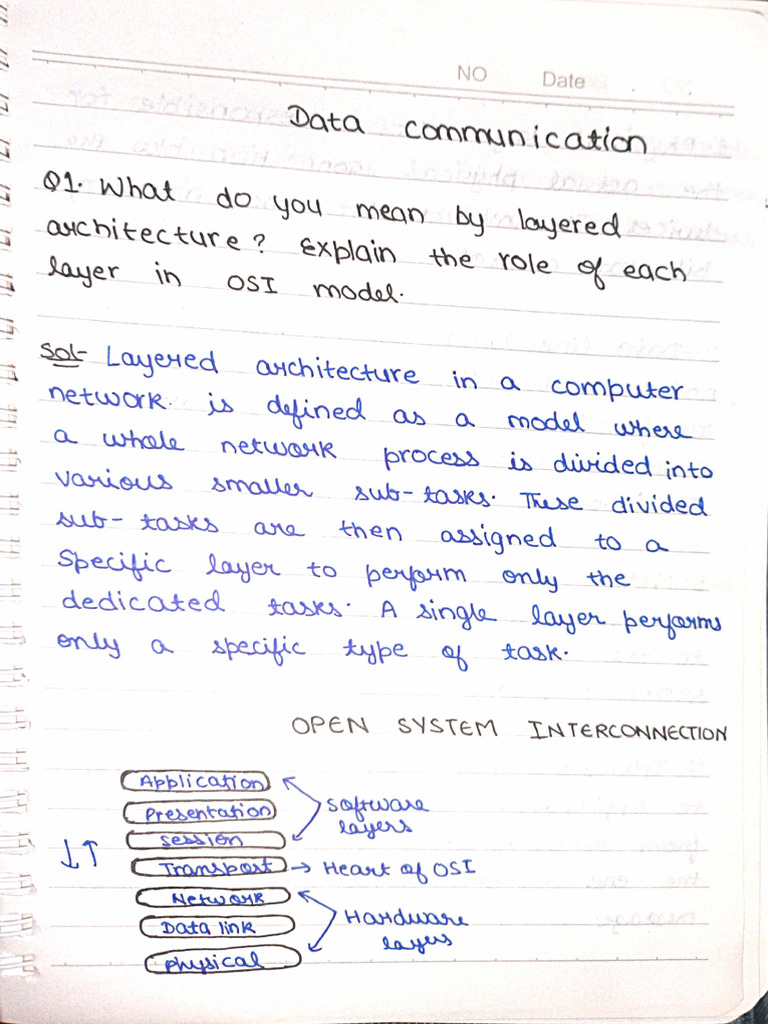 NO Date
Data communication
Q1. What do you mean by layered
architecture? Explain the role of each
layer in OSI model.
Sol- Layered architecture in a computer
network. is defined as a model where
a whole network process is divided into
various smaller sub-tasks. These divided
sub-tasks are then assigned to a
Specific layer to perform only the
dedicated tasks. A single layer performs
only a specific type of task.
OPEN SYSTEM INTERCONNECTION
Application
Presentation
Session
Transport
Network
Data link
Physical
Software
layers
Heart of OSI
Hardware
layers